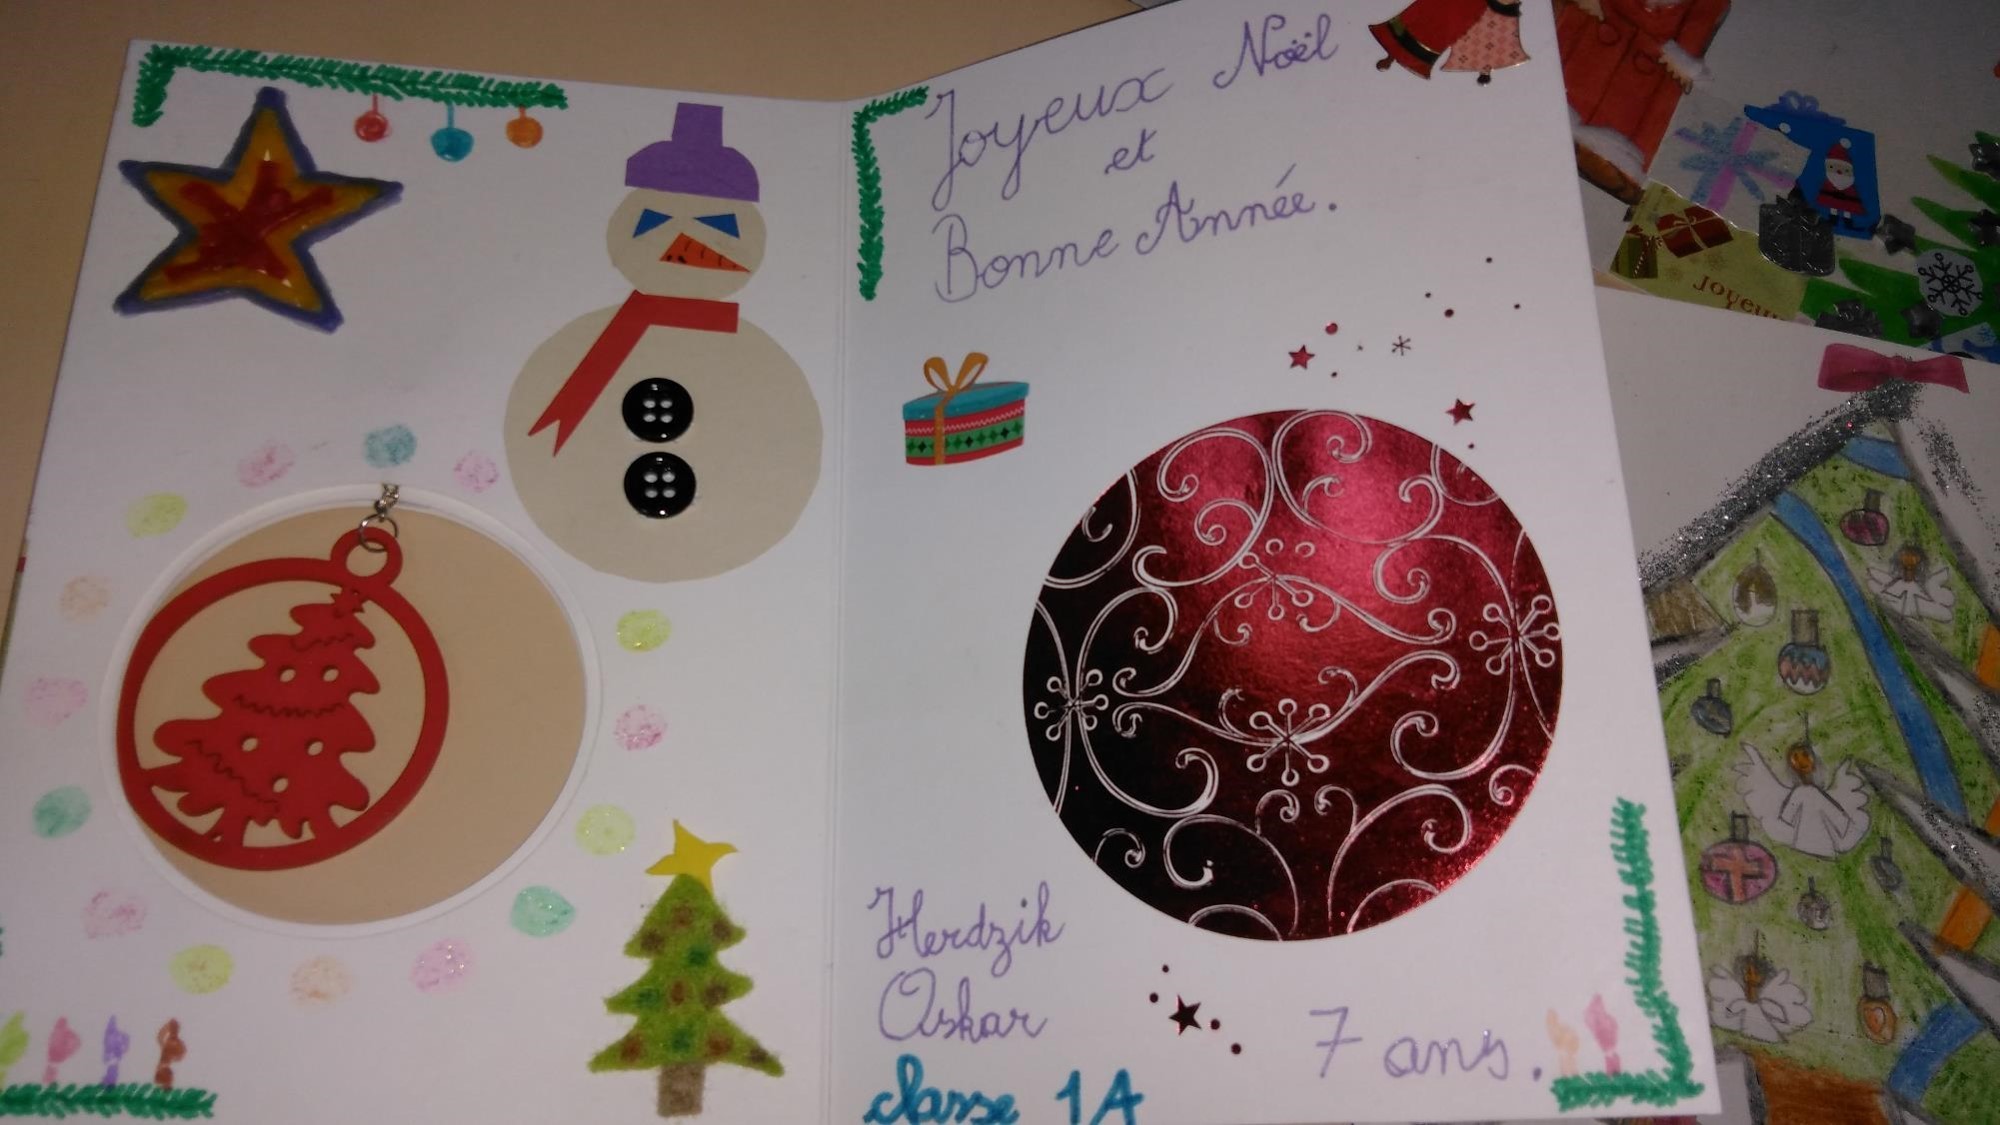 Joyeux Noël
et
Bonne Année.
Herdzik
Oskar
classe 1A
7 ans.
Joyeu